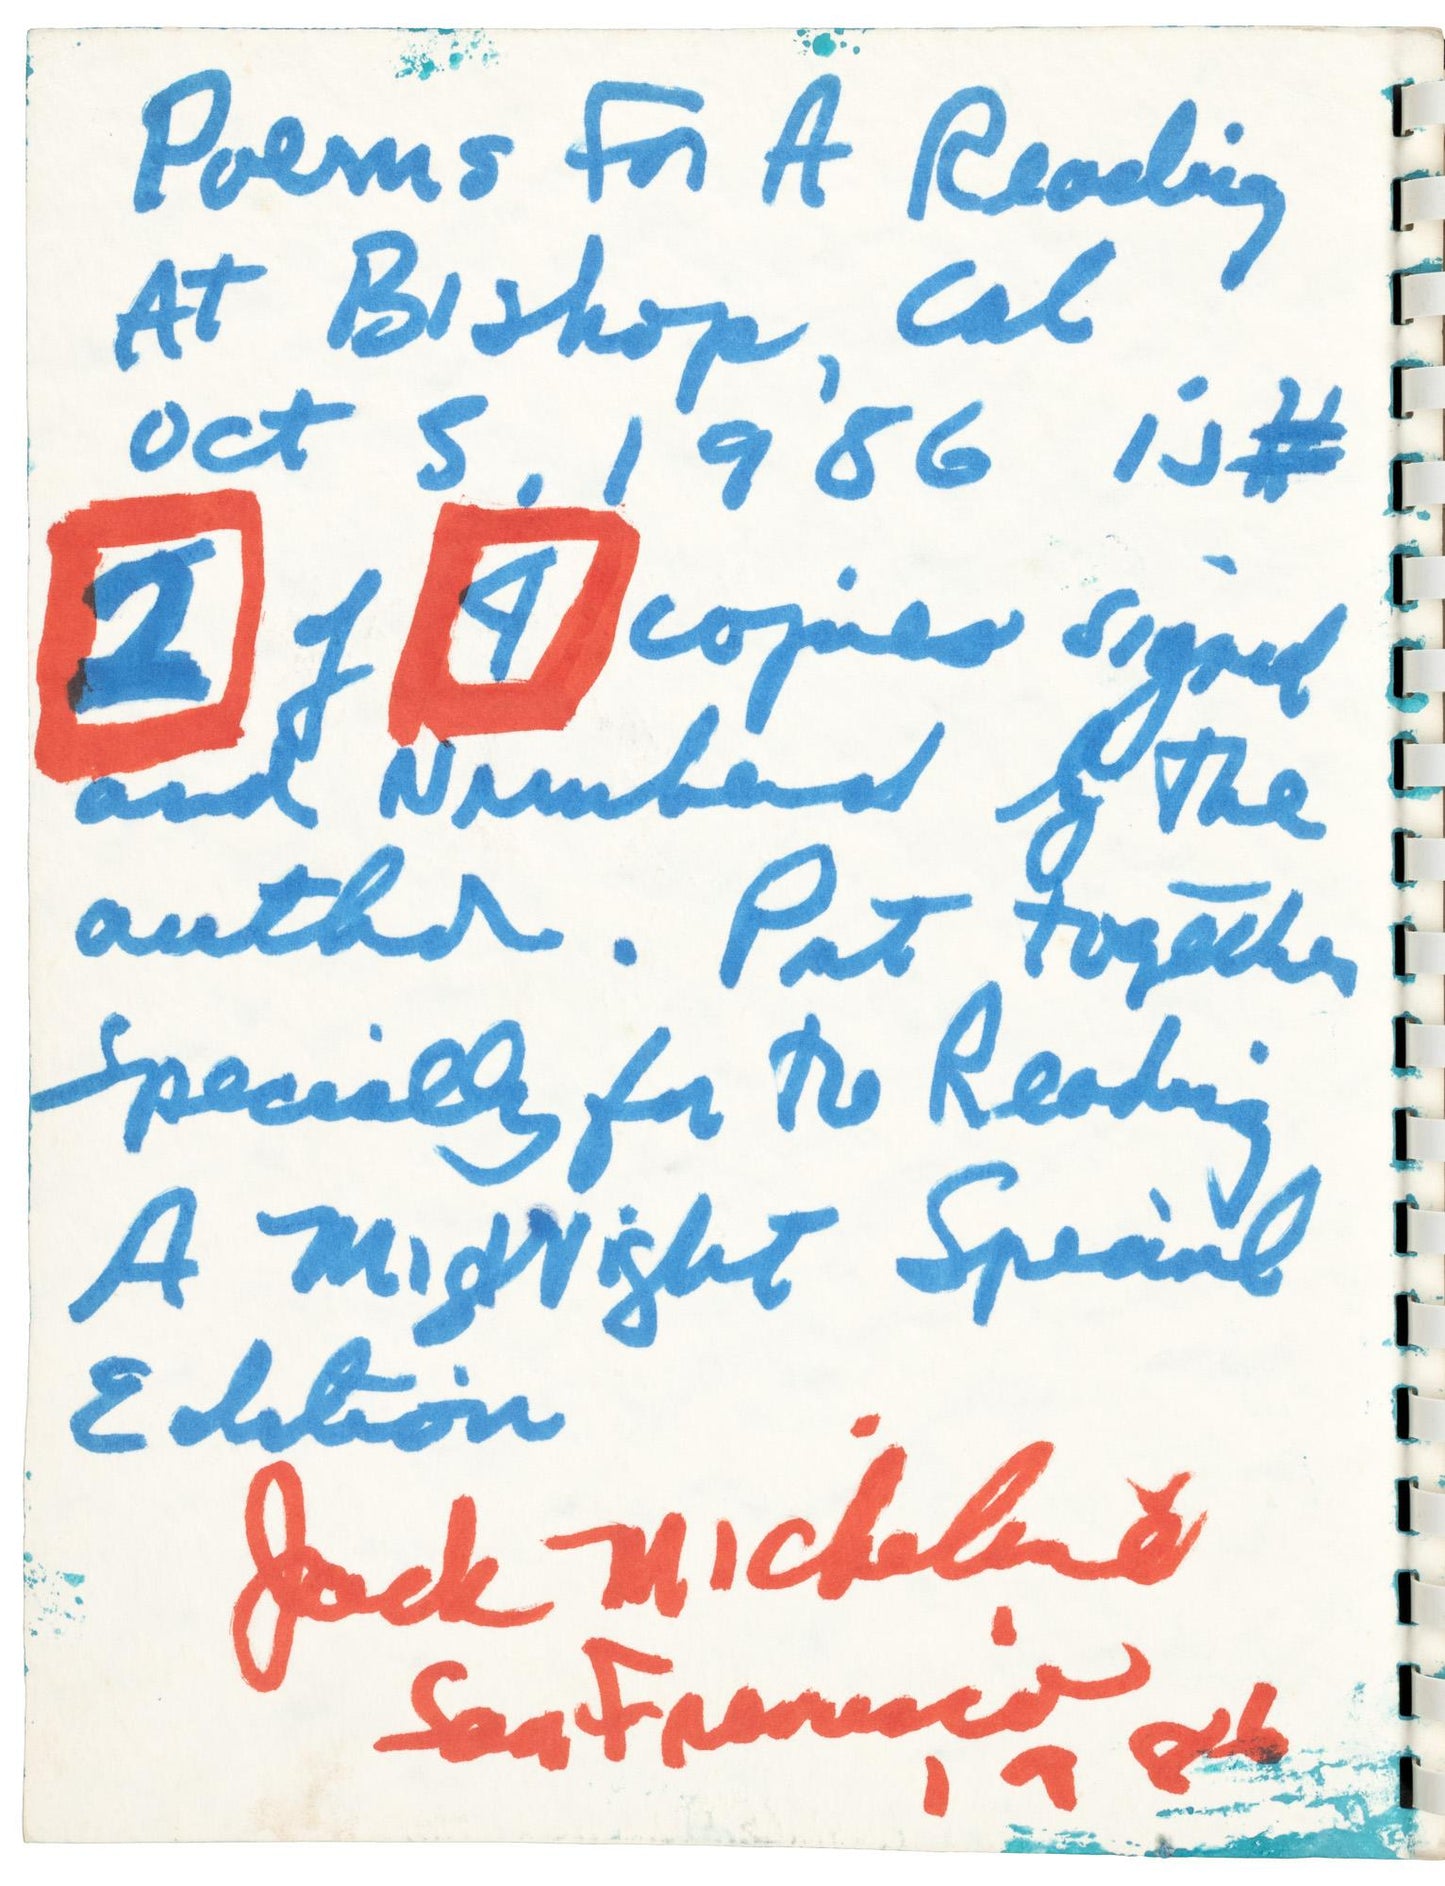 Poems For A Reading
At Bishop, Cal
Oct 5, 1986 is #
2 of 4 copies signed
and Numbered by the
author. Put together
specially for the Reading
A MidNight Special
Edition
Jack Micheline
San Francisco
1986